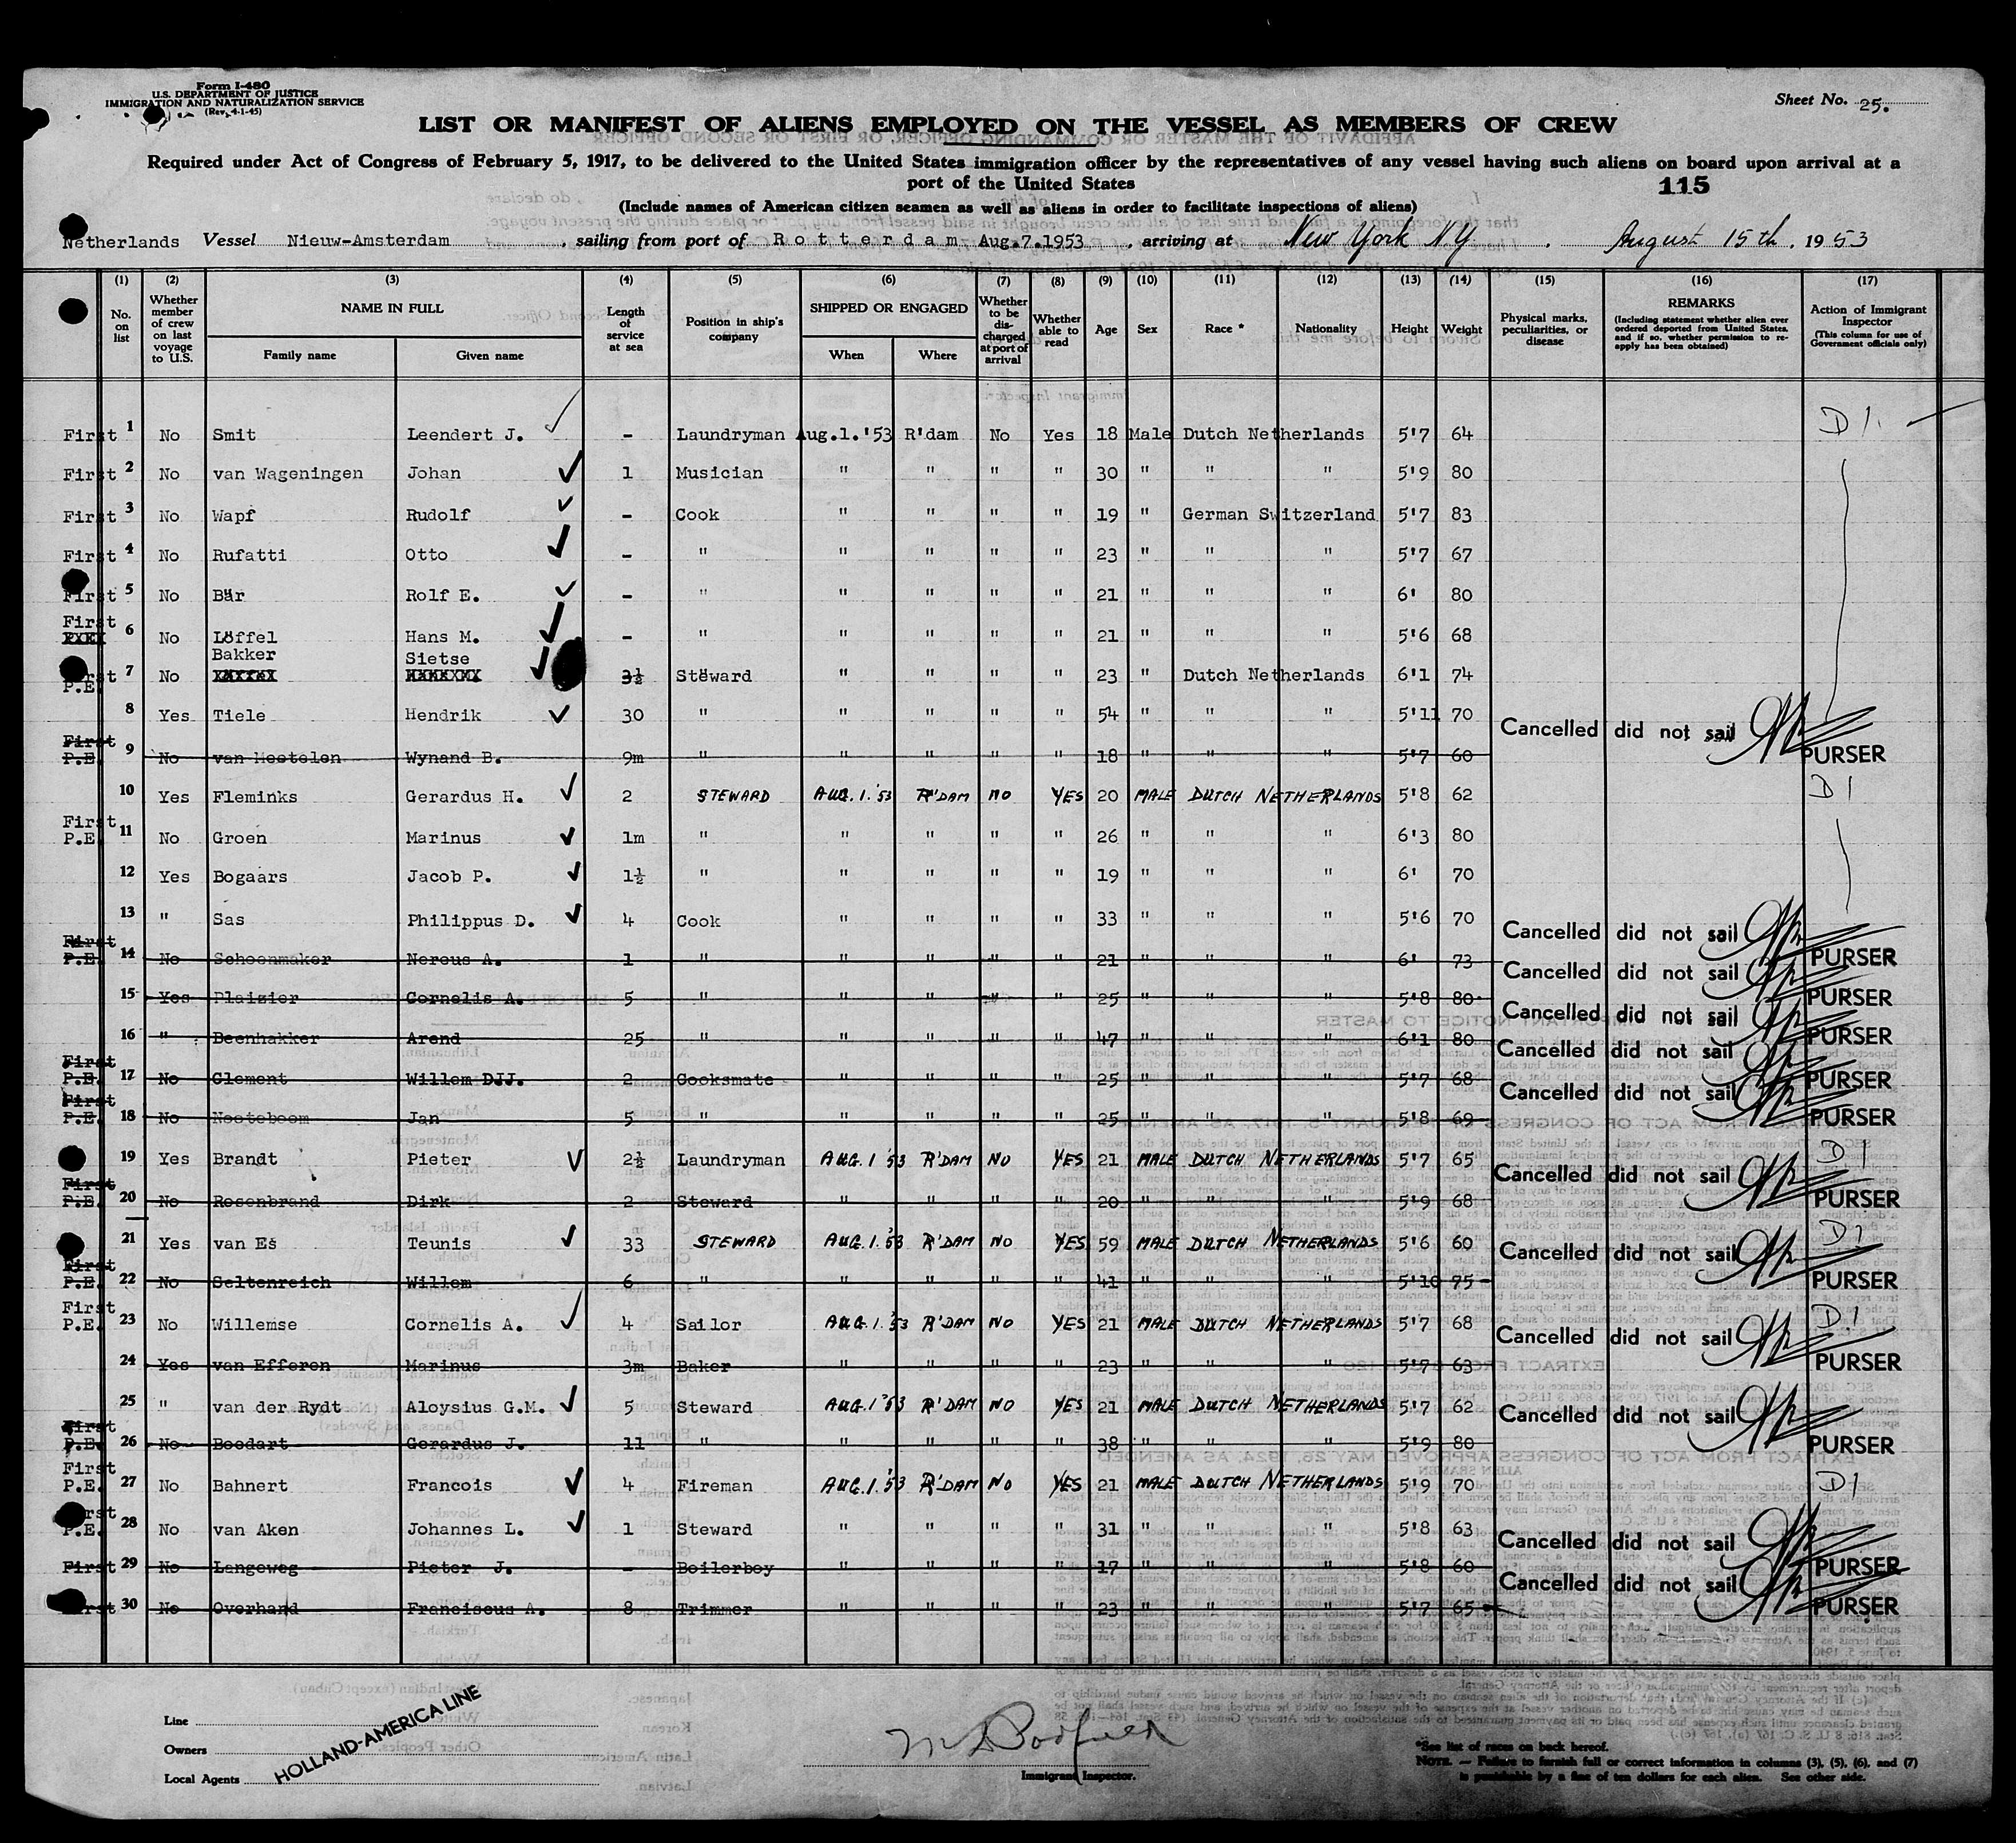 Form I-480
U.S. DEPARTMENT OF JUSTICE
IMMIGRATION AND NATURALIZATION SERVICE
(Rev. 4-1-45)
Sheet No. 25.
LIST OR MANIFEST OF ALIENS EMPLOYED ON THE VESSEL AS MEMBERS OF CREW
Required under Act of Congress of February 5, 1917, to be delivered to the United States immigration officer by the representatives of any vessel having such aliens on board upon arrival at a
port of the United States
115
(Include names of American citizen seamen as well as aliens in order to facilitate inspections of aliens)
Netherlands Vessel Nieuw-Amsterdam, sailing from port of Rotterdam Aug.7.1953, arriving at New York N.Y. August 15th, 1953
(1) (2) (3) (4) (5) (6) (7) (8) (9) (10) (11) (12) (13) (14) (15) (16) (17)
No. on list
Whether member of crew on last voyage to U.S.
NAME IN FULL
Family name Given name
Length of service at sea
Position in ship's company
SHIPPED OR ENGAGED
When Where
Whether to be discharged at port of arrival
Whether able to read
Age
Sex
Race *
Nationality
Height
Weight
Physical marks, peculiarities, or disease
REMARKS
(Including statement whether alien ever ordered deported from United States, and if so, whether permission to re-apply has been obtained)
Action of Immigrant Inspector
(This column for use of Government officials only)
First 1 No Smit Leendert J. - Laundryman Aug.1.'53 R'dam No Yes 18 Male Dutch Netherlands 5'7 64 D1
First 2 No van Wageningen Johan 1 Musician " " " " 30 " " " 5'9 80
First 3 No Wapf Rudolf - Cook " " " " 19 " German Switzerland 5'7 83
First 4 No Rufatti Otto - " " " " " 23 " " " 5'7 67
First 5 No Bär Rolf E. - " " " " " 21 " " " 6' 80
First 6 No Löffel Hans M. - " " " " " 21 " " " 5'6 68
Bakker Sietse
First P.E. 7 No 3½ Steward " " " " 23 " Dutch Netherlands 6'1 74
8 Yes Tiele Hendrik 30 " " " " " 54 " " " 5'11 70
Cancelled did not sail PURSER
First P.E. 9 No van Meetelen Wynand B. 9m " " " " " 18 " " " 5'7 60
10 Yes Fleminks Gerardus H. 2 STEWARD AUG.1.'53 R'DAM NO YES 20 MALE DUTCH NETHERLANDS 5'8 62 D1
First P.E. 11 No Groen Marinus 1m " " " " " 26 " " " 6'3 80
12 Yes Bogaars Jacob P. 1½ " " " " " 19 " " " 6' 70
13 " Sas Philippus D. 4 Cook " " " " 33 " " " 5'6 70
Cancelled did not sail PURSER
First P.E. 14 No Schoonmaker Nereus A. 1 " " " " " 21 " " " 6' 73
Cancelled did not sail PURSER
15 Yes Plaizier Cornelis A. 5 " " " " " 25 " " " 5'8 80
Cancelled did not sail PURSER
16 " Beenhakker Arend 25 " " " " " 47 " " " 6'1 80
Cancelled did not sail PURSER
First P.E. 17 No Clement Willem D.J. 2 Cooksmate " " " " 25 " " " 5'7 68
Cancelled did not sail PURSER
First P.E. 18 No Nooteboom Jan 5 " " " " " 25 " " " 5'8 69
19 Yes Brandt Pieter 2½ Laundryman AUG.1 '53 R'DAM NO YES 21 MALE DUTCH NETHERLANDS 5'7 65 D1
Cancelled did not sail PURSER
First P.E. 20 No Rosenbrand Dirk 2 Steward " " " " 20 " " " 5'9 68
21 Yes van Es Teunis 33 STEWARD AUG.1.'53 R'DAM NO YES 59 MALE DUTCH NETHERLANDS 5'6 60 D1
Cancelled did not sail PURSER
First P.E. 22 No Seltenreich Willem 6 " " " " " 41 " " " 5'10 75
First P.E. 23 No Willemse Cornelis A. 4 Sailor AUG.1.'53 R'DAM NO YES 21 MALE DUTCH NETHERLANDS 5'7 68 D1
Cancelled did not sail PURSER
24 Yes van Efferen Marinus 3m Baker " " " " 23 " " " 5'7 63
25 " van der Rydt Aloysius G.M. 5 Steward AUG.1'53 R'DAM NO YES 21 MALE DUTCH NETHERLANDS 5'7 62
Cancelled did not sail PURSER
First P.E. 26 No Boodart Gerardus J. 11 " " " " " 38 " " " 5'9 80
First P.E. 27 No Bahnert Francois 4 Fireman AUG.1.'53 R'DAM NO YES 21 MALE DUTCH NETHERLANDS 5'9 70 D1
First P.E. 28 No van Aken Johannes L. 1 Steward " " " " 31 " " " 5'8 63
Cancelled did not sail PURSER
First 29 No Langeweg Pieter J. - Boilerboy " " " " 17 " " " 5'8 60
Cancelled did not sail PURSER
First 30 No Overhand Franciscus A. 8 Trimmer " " " " 23 " " " 5'7 65
Line
Owners
Local Agents
HOLLAND-AMERICA LINE
Immigrant Inspector.
*See list of races on back hereof.
NOTE. — Failure to furnish full or correct information in columns (3), (5), (6), and (7)
is punishable by a fine of ten dollars for each alien. See other side.